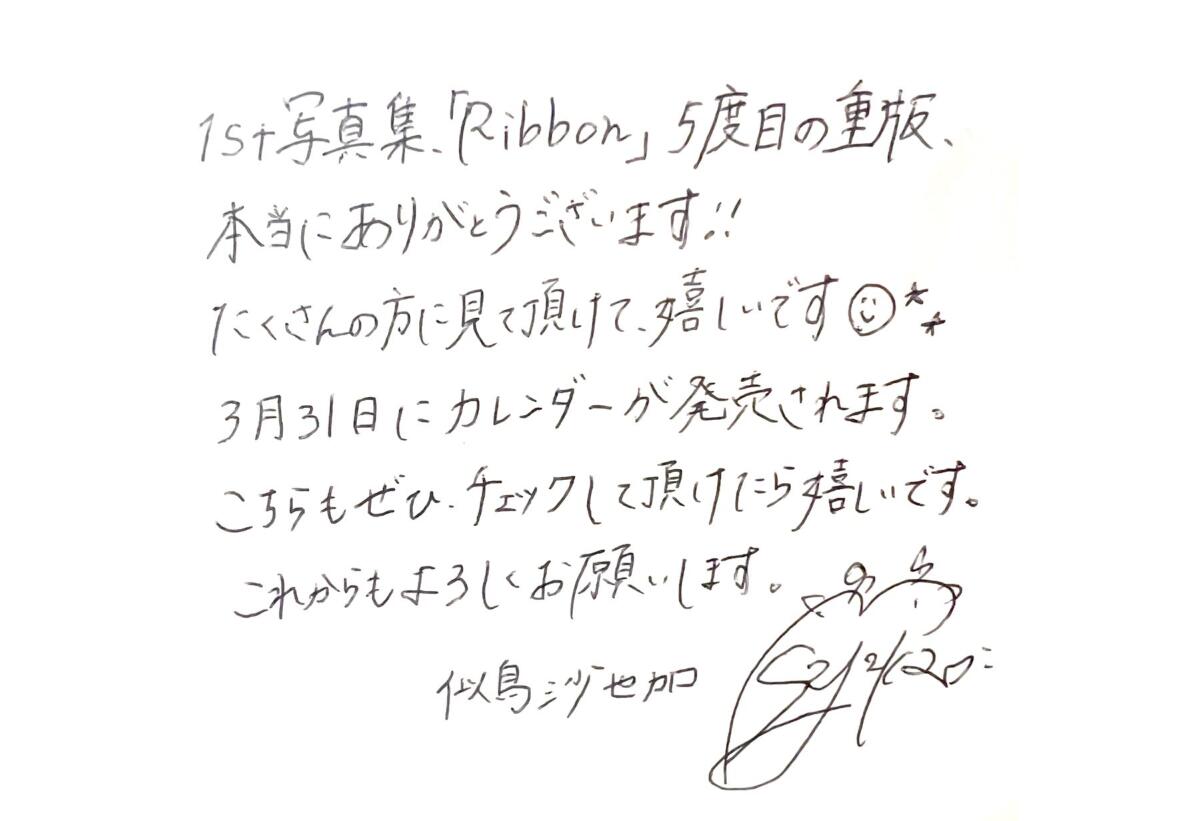 1st写真集、「Ribbon」5度目の重版、
本当にありがとうございます!!
たくさんの方に見て頂けて、嬉しいです☺**
3月31日にカレンダーが発売されます。
こちらもぜひ、チェックして頂けたら嬉しいです。
これからもよろしくお願いします。
似鳥沙也加